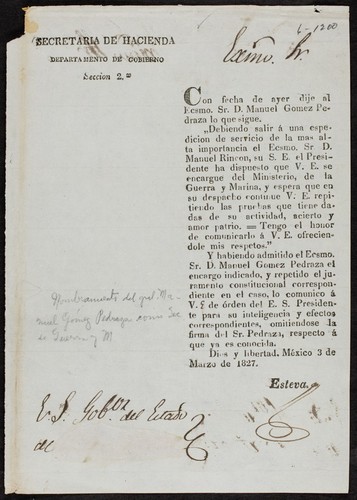 6-1200
SECRETARIA DE HACIENDA
DEPARTAMENTO DE GOBIERNO
Seccion 2.ª
Exmo. Sr.
Con fecha de ayer dije al
Ecsmo. Sr. D. Manuel Gomez Pe-
draza lo que sigue.
„Debiendo salir á una espe-
dicion de servicio de la mas al-
ta importancia el Ecsmo. Sr. D.
Manuel Rincon, su S. E. el Presi-
dente ha dispuesto que V. E. se
encargue del Ministerio, de la
Guerra y Marina, y espera que en
su despacho continue V. E. repi-
tiendo las pruebas que tiene da-
das de su actividad, acierto y
amor patrio. = Tengo el honor
de comunicarlo á V. E. ofrecien-
dole mis respetos."
Y habiendo admitido el Ecsmo.
Sr. D. Manuel Gomez Pedraza el
encargo indicado, y repetido el ju-
ramento constitucional correspon-
diente en el caso, lo comunico á
V. E de órden del E. S. Presiden-
te para su inteligencia y efectos
correspondientes, omitiendose la
firma del Sr. Pedraza, respecto á
que ya es conocida.
Dios y libertad. México 3 de
Marzo de 1827.
Esteva.
Nombramiento del gral Ma-
nuel Gómez Pedraza como Sec
de Guerra y M
E. S. Gob.or del Estado
de